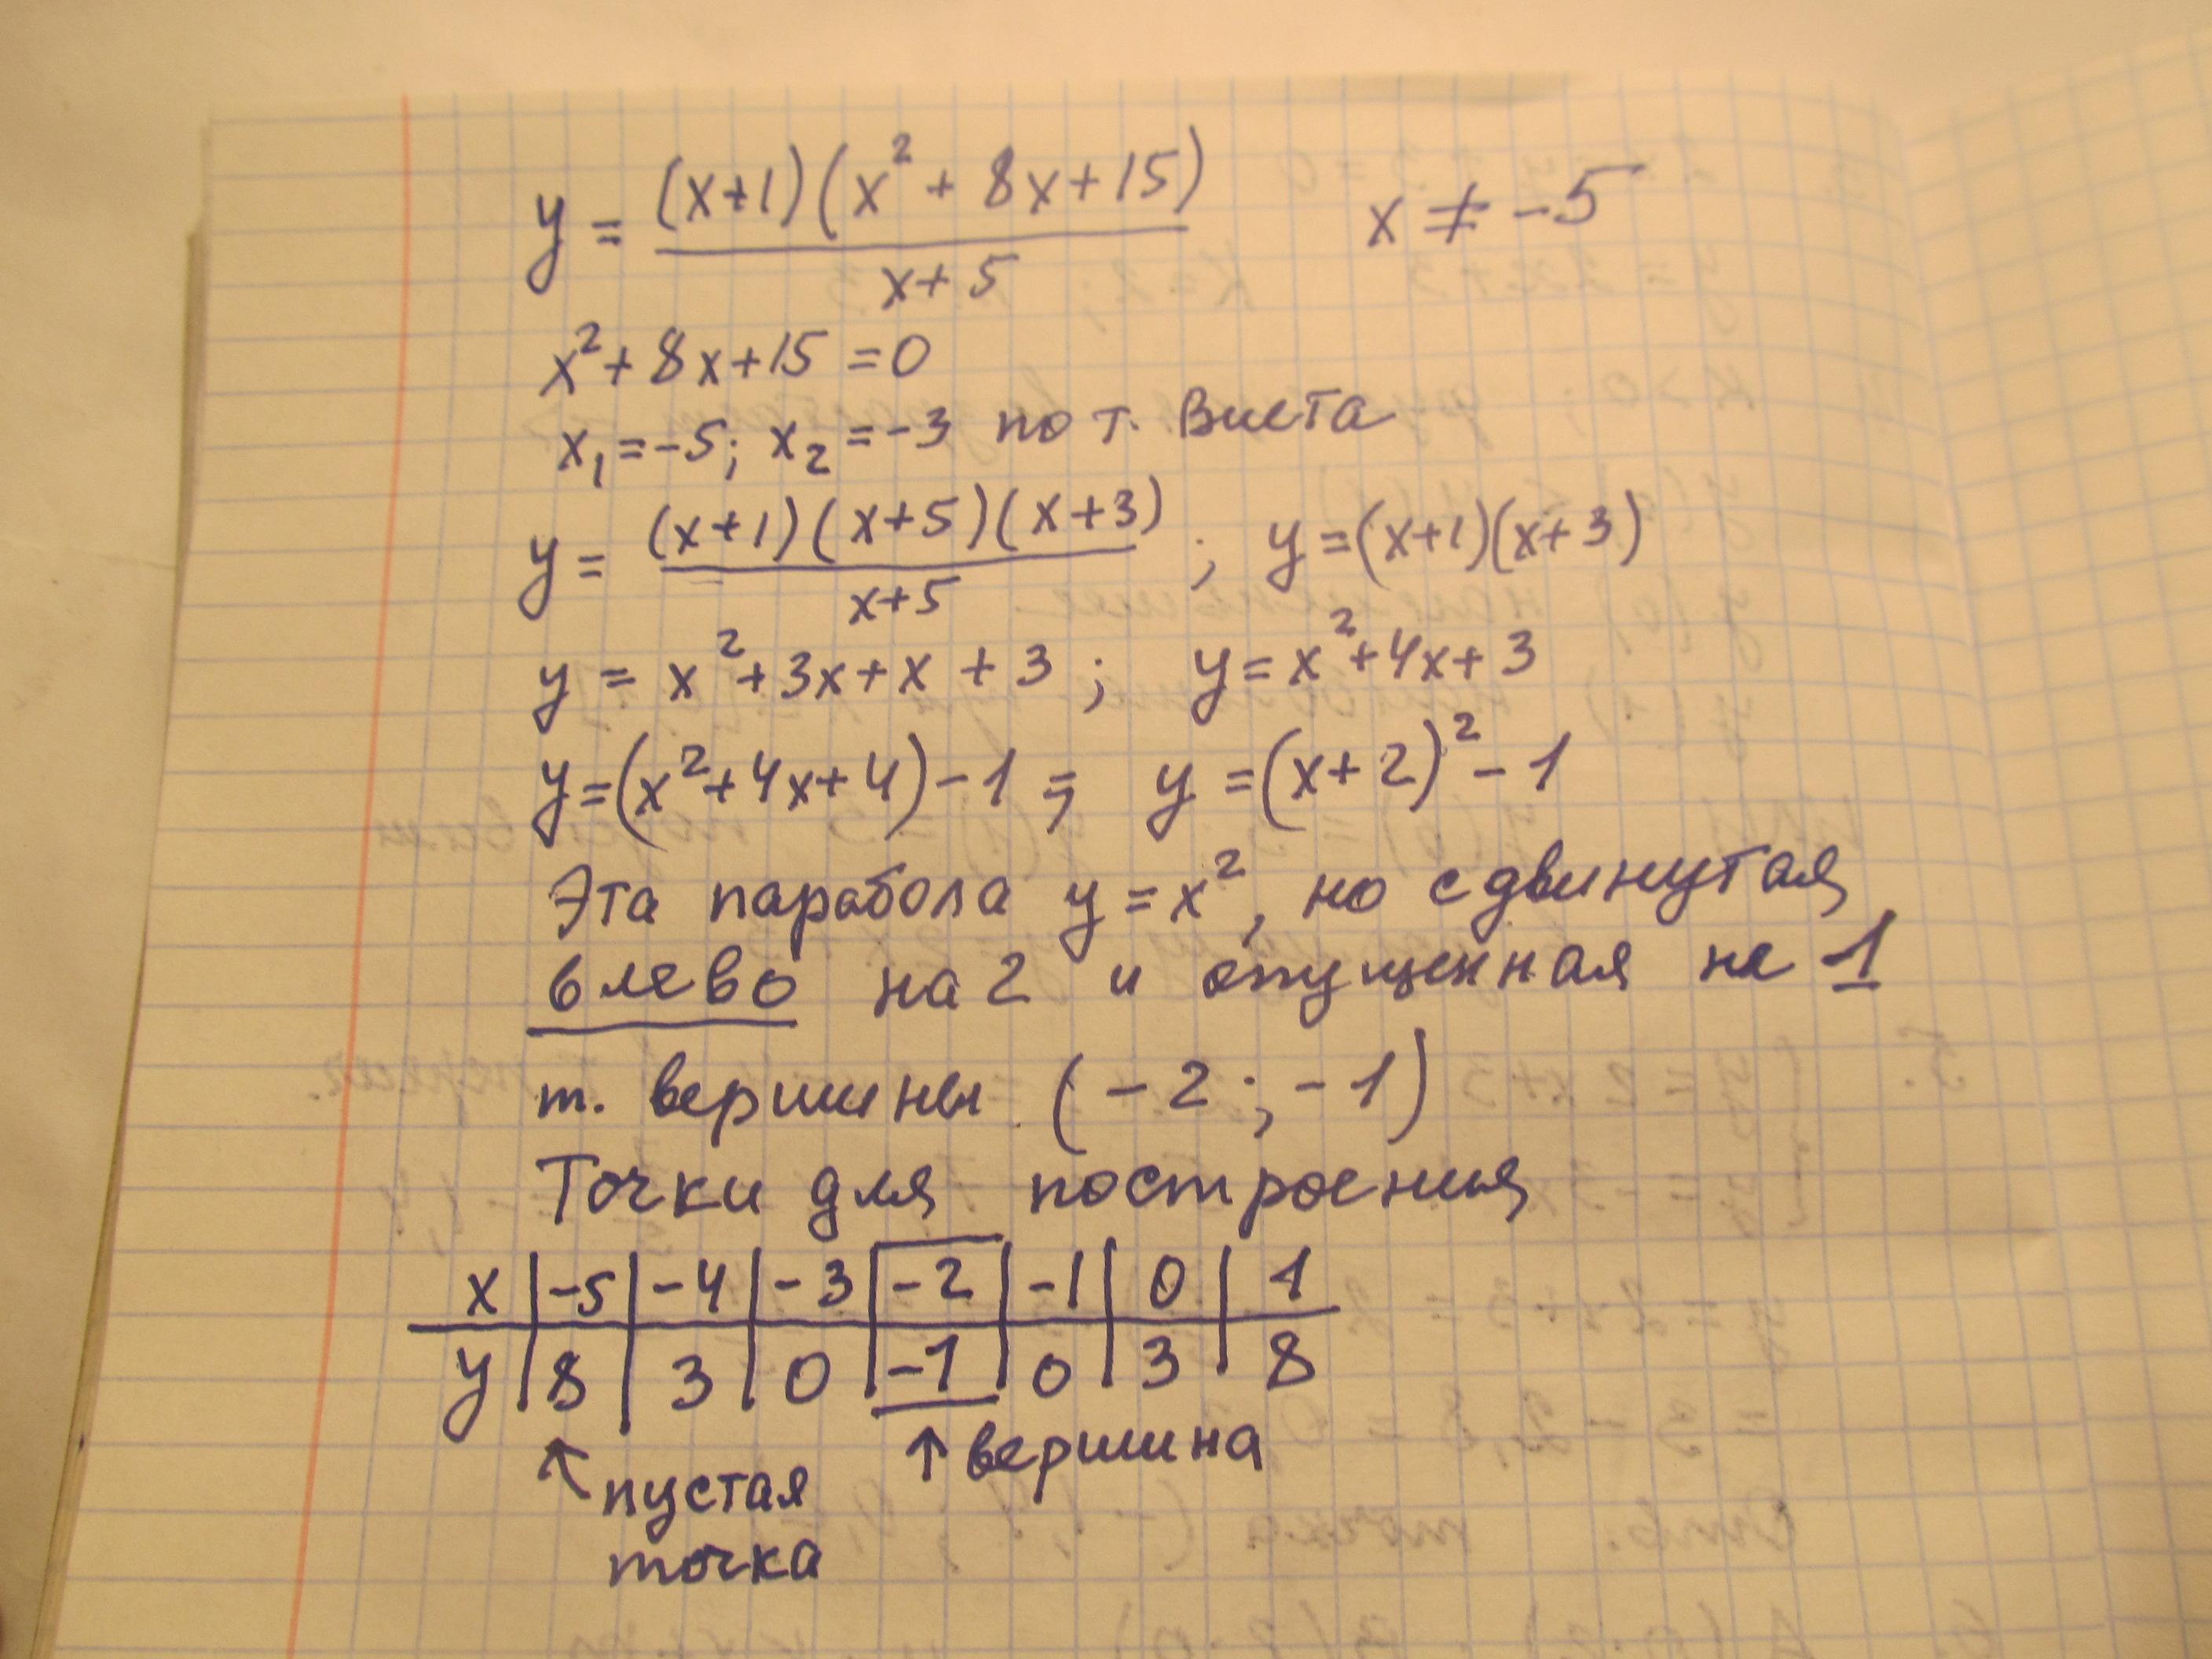 y = (x+1)(x² + 8x+15) / x+5    x ≠ -5
x² + 8x+15 = 0
x₁ = -5; x₂ = -3 по т. Виета
y = (x+1)(x+5)(x+3) / x+5 ; y = (x+1)(x+3)
y = x² + 3x + x + 3 ; y = x² + 4x + 3
y = (x² + 4x + 4) - 1 ; y = (x+2)² - 1
Эта парабола y = x², но сдвинутая
влево на 2 и опущенная на 1
т. вершины (-2 ; -1)
Точки для построения
x | -5 | -4 | -3 | -2 | -1 | 0 | 1
y | 8 | 3 | 0 | -1 | 0 | 3 | 8
↑ вершина
↖ пустая
точка